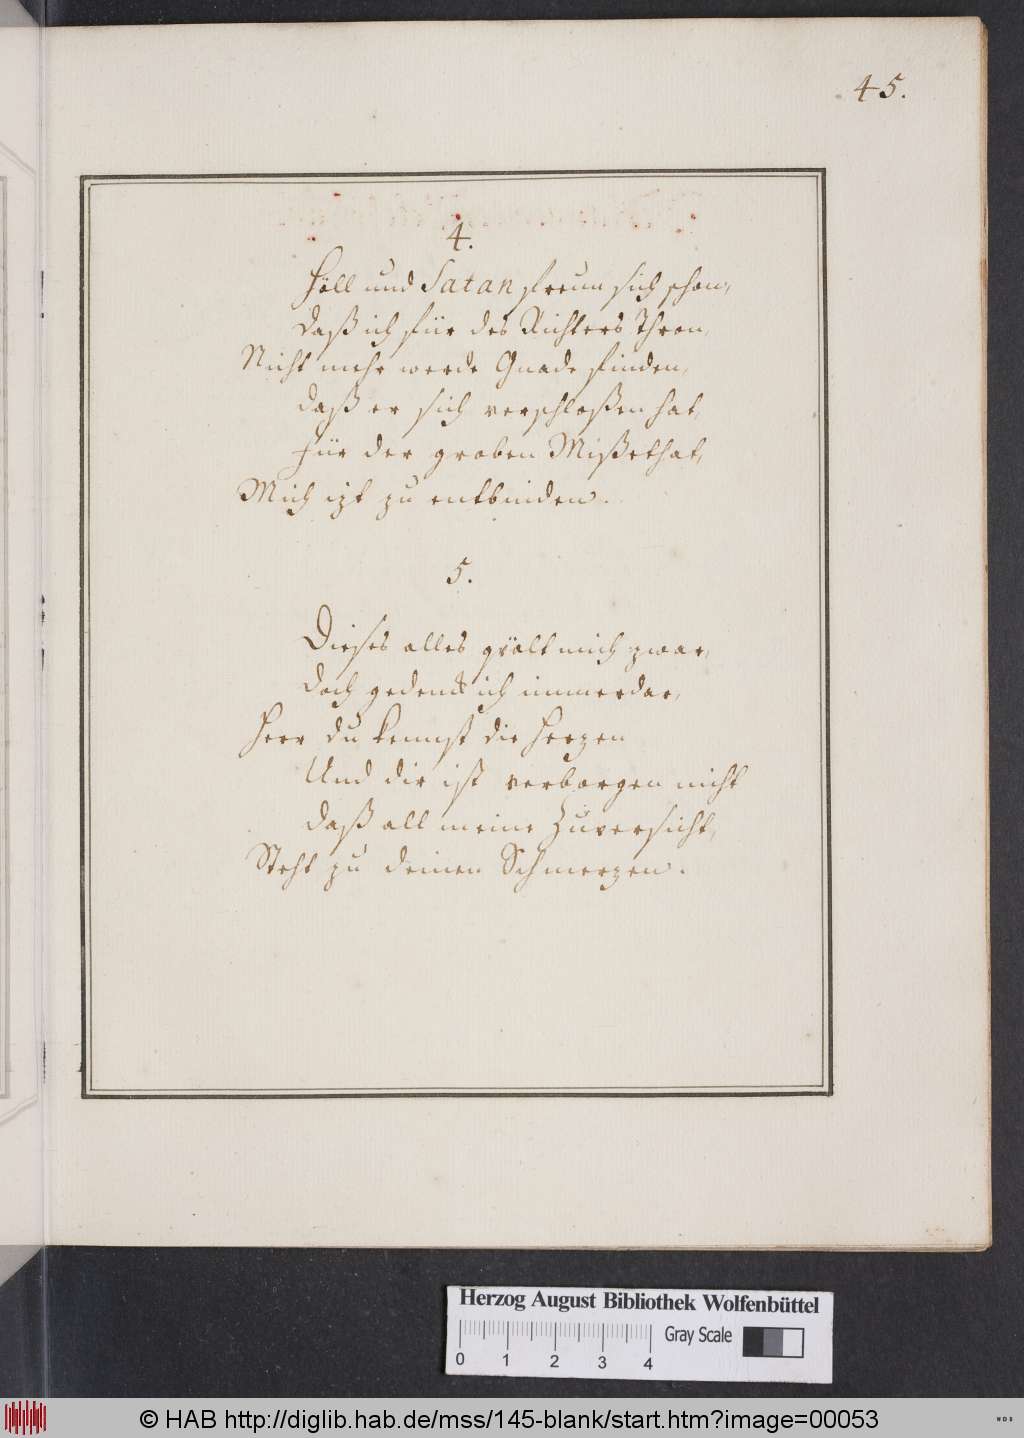 45.
4.
Höll und Satan freun sich schon,
Daß ich für des Richters Thron,
Nicht mehr werde Gnade finden,
Daß er sich verschloßen hat,
Für der groben Mißethat,
Mich izt zu entbinden.
5.
Dieses alles qvält mich zwar,
Doch gedenk ich immerdar,
Herr du kennst die Herzen
Und dir ist verborgen nicht
Daß all meine Zuversicht,
Steht zu deinen Schmerzen.
Herzog August Bibliothek Wolfenbüttel
Gray Scale
0 1 2 3 4
© HAB http://diglib.hab.de/mss/145-blank/start.htm?image=00053